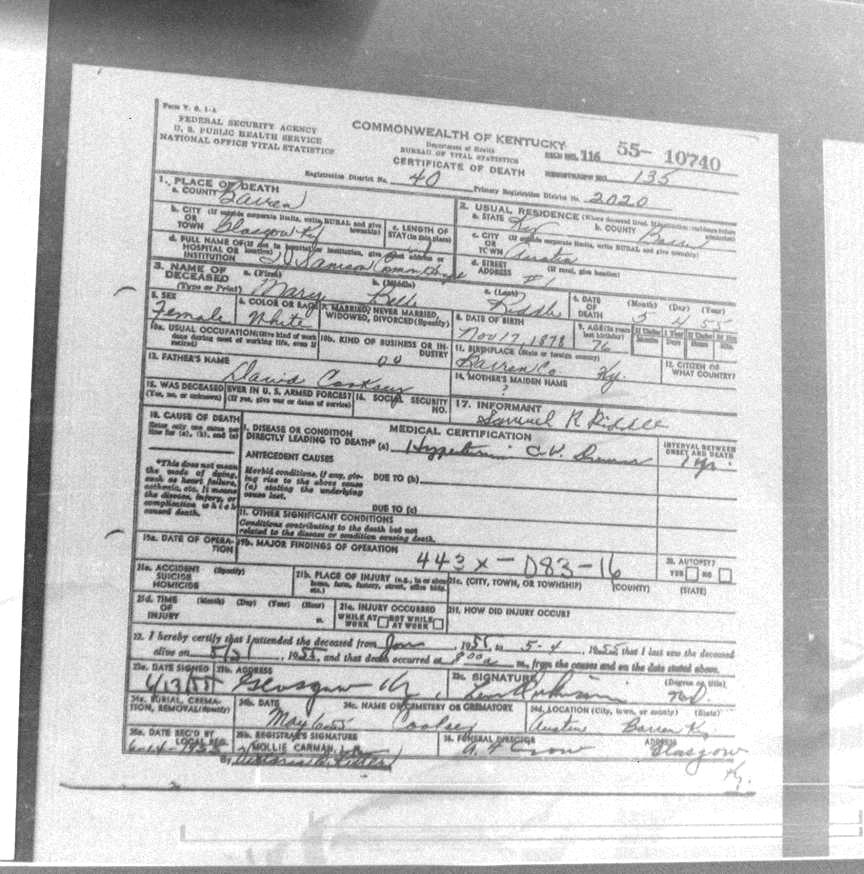 Form V. S. 1-A
FEDERAL SECURITY AGENCY
U. S. PUBLIC HEALTH SERVICE
NATIONAL OFFICE VITAL STATISTICS
COMMONWEALTH OF KENTUCKY
Department of Health
BUREAU OF VITAL STATISTICS
CERTIFICATE OF DEATH
116 55- 10740
135
Registration District No. 40 Primary Registration District No. 2020
1. PLACE OF DEATH
a. COUNTY Barren
2. USUAL RESIDENCE (Where deceased lived.
a. STATE Ky b. COUNTY Barren
b. CITY (If outside corporate limits, write RURAL and give township)
OR TOWN Glasgow Ky
c. LENGTH OF STAY (in this place)
c. CITY (If outside corporate limits, write RURAL and give township)
OR TOWN Austin
d. FULL NAME OF (If not in hospital or institution, give street address or location)
HOSPITAL OR INSTITUTION T J Samson Comm
d. STREET ADDRESS (If rural, give location) #1
3. NAME OF DECEASED (Type or Print)
a. (First) Mary b. (Middle) Belle c. (Last) Riddle
4. DATE OF DEATH (Month) (Day) (Year) 5 4 55
5. SEX Female
6. COLOR OR RACE White
7. MARRIED, NEVER MARRIED, WIDOWED, DIVORCED (Specify)
8. DATE OF BIRTH Nov 17, 1878
9. AGE (In years last birthday) 76
If Under 1 Year Months Days If Under 24 Hrs. Hours Min.
10a. USUAL OCCUPATION (Give kind of work done during most of working life, even if retired)
10b. KIND OF BUSINESS OR INDUSTRY
11. BIRTHPLACE (State or foreign country) Barren Co Ky.
12. CITIZEN OF WHAT COUNTRY?
13. FATHER'S NAME David
14. MOTHER'S MAIDEN NAME ?
15. WAS DECEASED EVER IN U. S. ARMED FORCES?
(Yes, no, or unknown) (If yes, give war or dates of service)
16. SOCIAL SECURITY NO.
17. INFORMANT Samuel R Riddle
18. CAUSE OF DEATH
Enter only one cause per line for (a), (b), and (c)
MEDICAL CERTIFICATION
INTERVAL BETWEEN ONSET AND DEATH
I. DISEASE OR CONDITION
DIRECTLY LEADING TO DEATH* (a) C. V. 1 yr
*This does not mean the mode of dying, such as heart failure, asthenia, etc. It means the disease, injury, or complication which caused death.
ANTECEDENT CAUSES
Morbid conditions, if any, giving rise to the above cause (a) stating the underlying cause last.
DUE TO (b)
DUE TO (c)
II. OTHER SIGNIFICANT CONDITIONS
Conditions contributing to the death but not related to the disease or condition causing death.
19a. DATE OF OPERATION
19b. MAJOR FINDINGS OF OPERATION
443x - D83-16
20. AUTOPSY?
YES NO
21a. ACCIDENT SUICIDE HOMICIDE (Specify)
21b. PLACE OF INJURY (e.g., in or about home, farm, factory, street, office bldg., etc.)
21c. (CITY, TOWN, OR TOWNSHIP) (COUNTY) (STATE)
21d. TIME OF INJURY (Month) (Day) (Year) (Hour) m.
21e. INJURY OCCURRED
WHILE AT WORK NOT WHILE AT WORK
21f. HOW DID INJURY OCCUR?
22. I hereby certify that I attended the deceased from Jan, 1955 to 5-4, 1955 that I last saw the deceased
alive on, 1955, and that death occurred at 8 00 a m., from the causes and on the date stated above.
23a. DATE SIGNED
23b. ADDRESS Glasgow Ky,
23c. SIGNATURE (Degree or title)
24a. BURIAL, CREMATION, REMOVAL (Specify)
24b. DATE May 6 55
24c. NAME OF CEMETERY OR CREMATORY
24d. LOCATION (City, town, or county) (State) Austin Barren Ky
25a. DATE REC'D BY LOCAL REG.
25b. REGISTRAR'S SIGNATURE
MOLLIE CARMAN
26. FUNERAL DIRECTOR A. F Crow
ADDRESS Glasgow Ky.
By